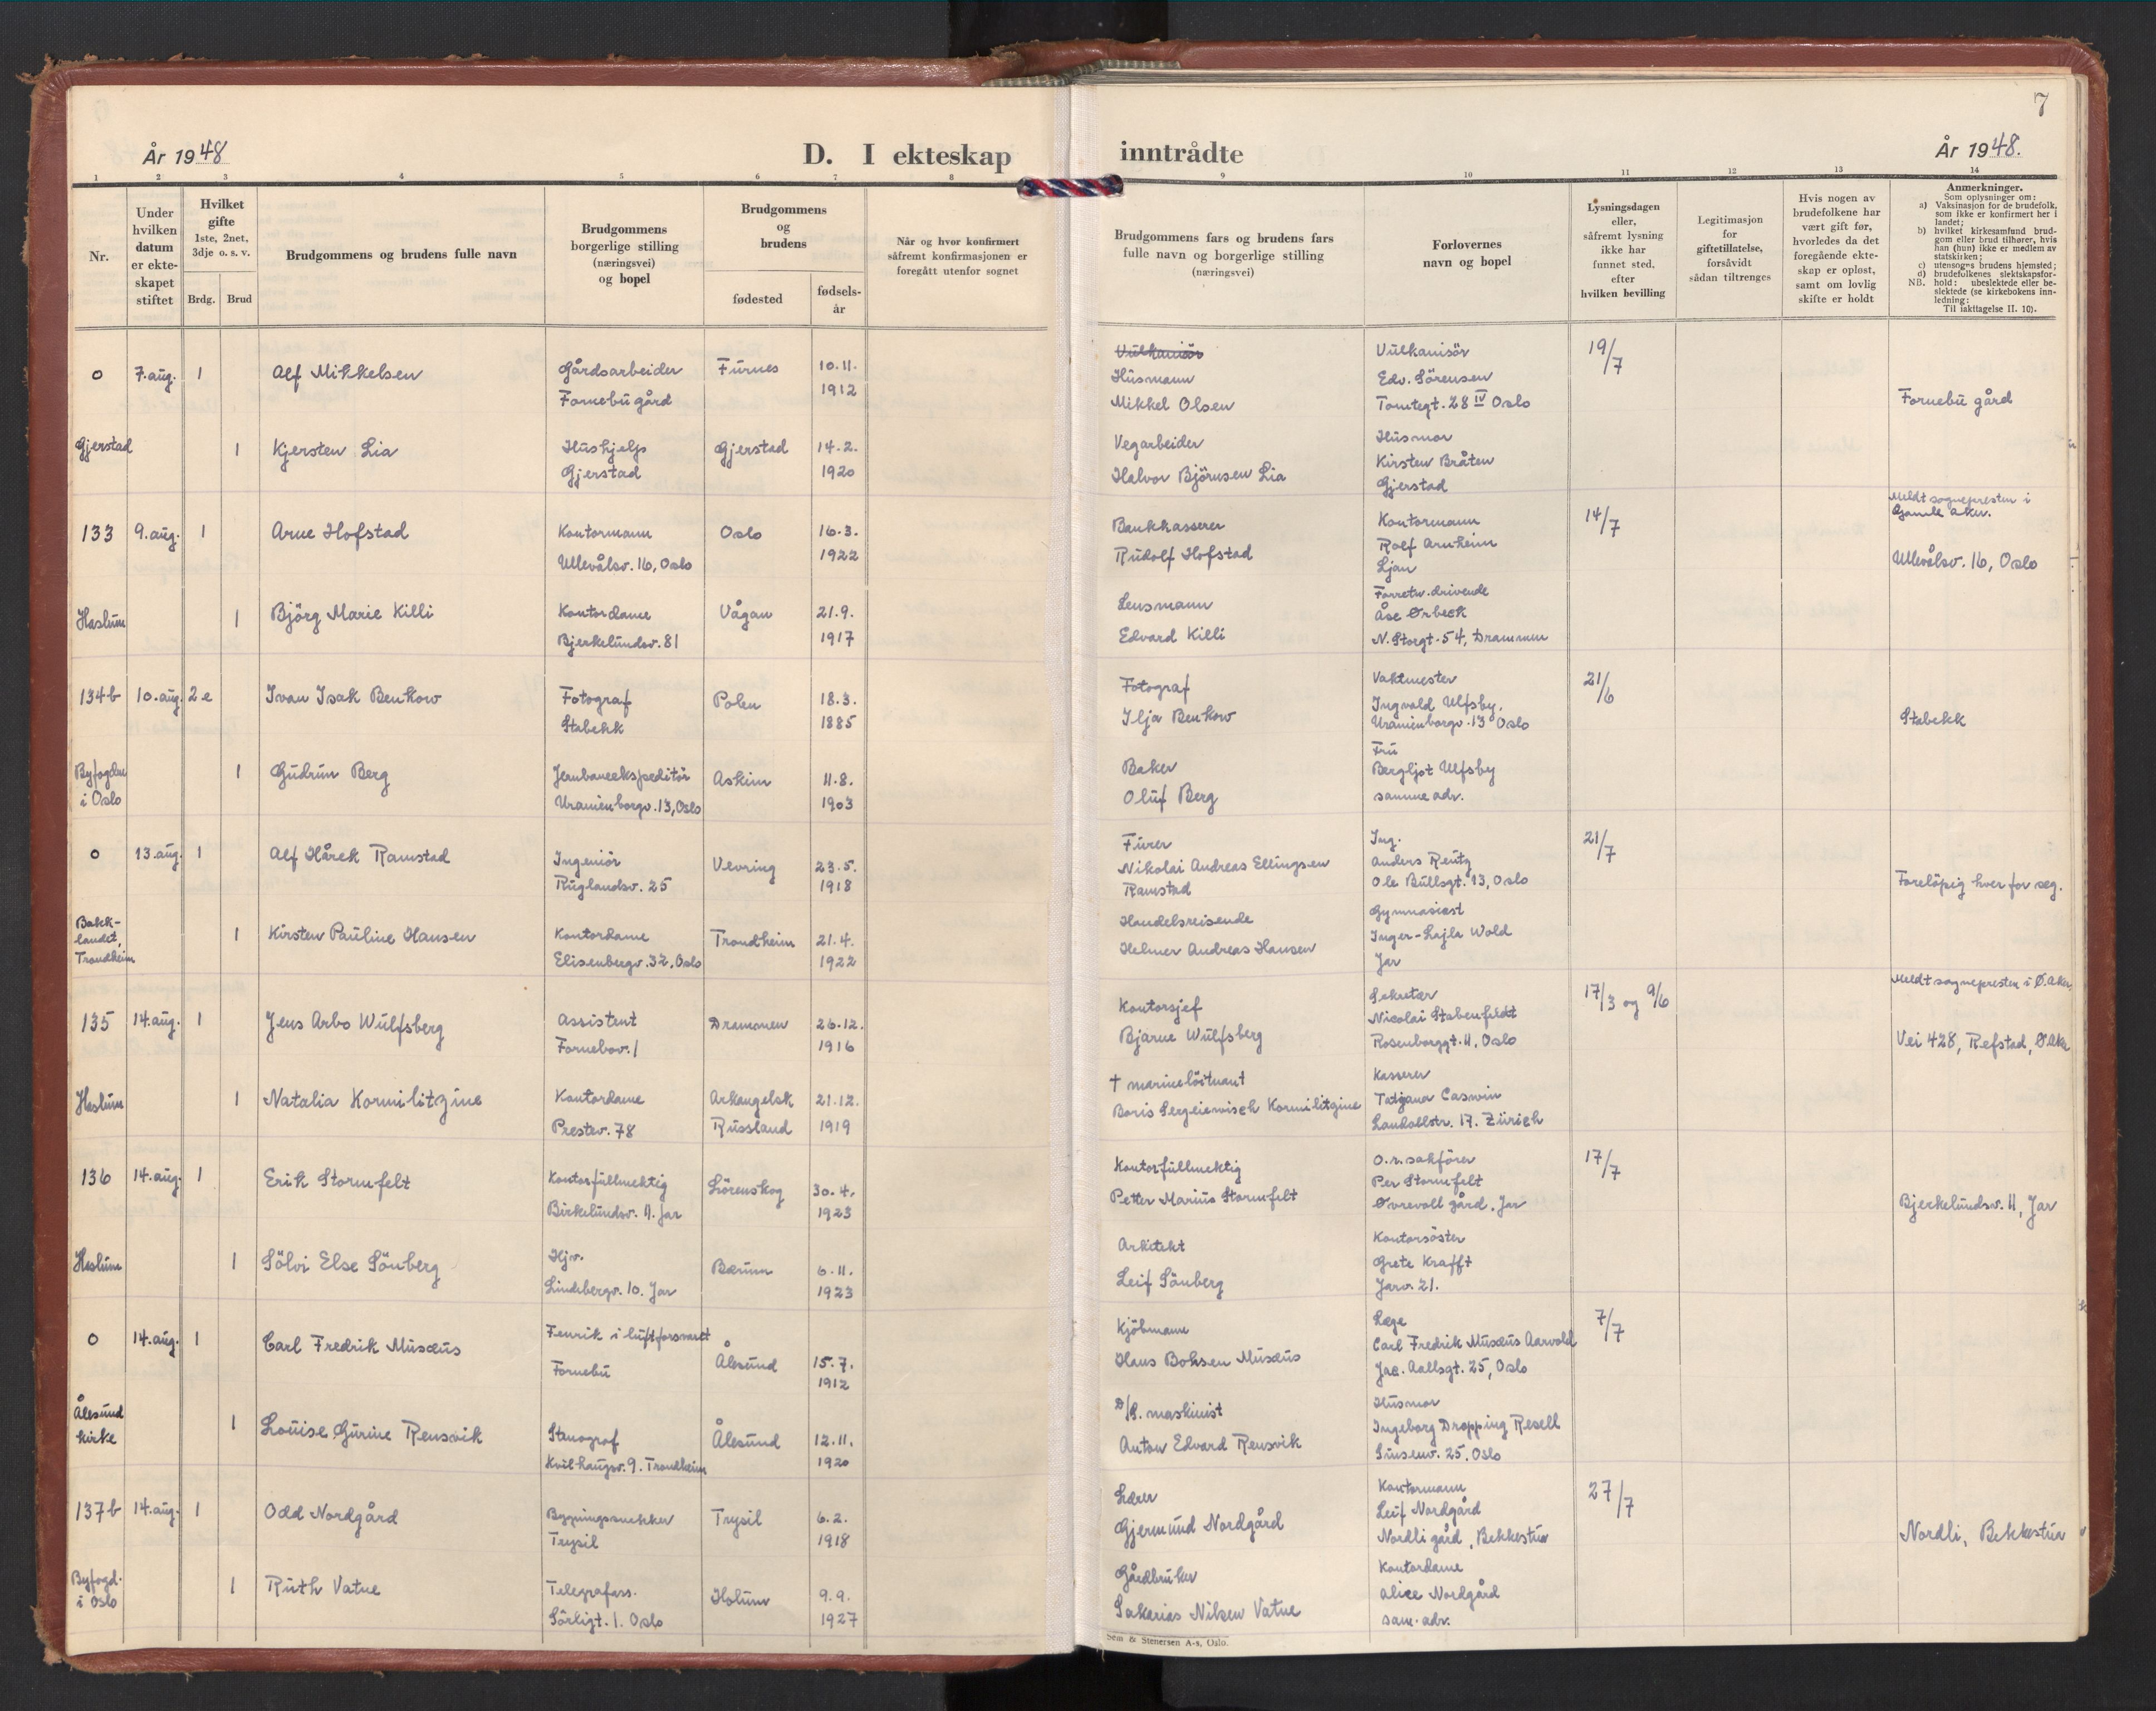 7
År 1948
D. I ekteskap
inntrådte
År 1948.
1 2 3 4 5 6 7 8 9 10 11 12 13 14
Nr.
Under
hvilken
datum
er ekte-
skapet
stiftet
Hvilket
gifte
1ste, 2net,
3dje o. s. v.
Brdg. Brud
Brudgommens og brudens fulle navn
Brudgommens
borgerlige stilling
(næringsvei)
og bopel
Brudgommens
og
brudens
fødested
fødsels-
år
Når og hvor konfirmert
såfremt konfirmasjonen er
foregått utenfor sognet
Brudgommens fars og brudens fars
fulle navn og borgerlige stilling
(næringsvei)
Forlovernes
navn og bopel
Lysningsdagen
eller,
såfremt lysning
ikke har
funnet sted,
efter
hvilken bevilling
Legitimasjon
for
giftetillatelse,
forsåvidt
sådan tiltrenges
Hvis nogen av
brudefolkene har
vært gift før,
hvorledes da det
foregående ekte-
skap er opløst,
samt om lovlig
skifte er holdt
Anmerkninger.
Som oplysninger om:
a) Vaksinasjon for de brudefolk,
som ikke er konfirmert her i
landet;
b) hvilket kirkesamfund brud-
gom eller brud tilhører, hvis
han (hun) ikke er medlem av
statskirken;
c) utensogns brudens hjemsted;
d) brudefolkenes slektskapsfor-
NB. hold: ubeslektede eller be-
slektede (se kirkebokens inn-
ledning:
Til iakttagelse II. 10).
0 7. aug. 1 Alf Mikkelsen
Gårdsarbeider
Fornebu gård
Furnes
10.11.
1912
Vulkanisör
Husmann
Mikkel Olsen
Vulkanisör
Edv. Sörensen
Tomtegt. 28 IV Oslo
19/7
Fornebu gård
Gjerstad 1 Kjersten Lia
Hushjelp
Gjerstad
Gjerstad
14.2.
1920
Vegarbeider
Halvor Björnsen Lia
Husmor
Kirsten Bråten
Gjerstad
133 9. aug. 1 Arne Hofstad
Kontormann
Ullevålsv. 16, Oslo
Oslo
16.3.
1922
Bankkasserer
Rudolf Hofstad
Kontormann
Rolf Arnheim
Ljan
14/7
Meldt sognepresten i
Gamle Aker.
Ullevålsv. 16, Oslo
Haslum 1 Björg Marie Killi
Kontordame
Bjerkelundsv. 81
Vågan
21.9.
1917
Lensmann
Edvard Killi
Forretn. drivende
Åse Ørbeck
N. Storgt. 54, Drammen
134b 10. aug. 2e Ivan Isak Benkow
Fotograf
Stabekk
Polen
18.3.
1885
Fotograf
Ilja Benkow
Vaktmester
Ingvald Ulfsby.
Uranienborgv. 13 Oslo
21/6
Stabekk
Byfogden
i Oslo
1 Gudrun Berg
Jernbaneekspeditör
Uranienborgv. 13, Oslo
Askim
11.8.
1903
Baker
Oluf Berg
Fru
Bergljot Ulfsby
samme adr.
0 13. aug. 1 Alf Hårek Ramstad
Ingeniör
Ruglandsv. 25
Vevring
23.5.
1918
Fürer
Nikolai Andreas Ellingsen
Ramstad
Ing.
Anders Rentz
Ole Bullsgt. 13, Oslo
21/7
Foreløpig hver for seg.
Bakk-
landet,
Trondheim
1 Kirsten Pauline Hansen
Kontordame
Elisenbergv. 32, Oslo
Trondheim
21.4.
1922
Handelsreisende
Helmer Andreas Hansen
Gymnasiast
Inger-Lajla Wold
Jar
135 14. aug. 1 Jens Arbo Wulfsberg
Assistent
Fornebov. 1
Drammen
26.12.
1916
Kontorsjef
Bjarne Wulfsberg
Sekretær
Nicolai Stabenfeldt
Rosenborggt. 11, Oslo
17/3 og 9/6
Meldt sognepresten i Ø. Aker.
Vei 428, Refstad, Ø. Aker
Haslum 1 Natalia Kormilitzine
Kontordame
Prestev. 78
Arkangelsk
Russland
21.12.
1919
† marinelöitnant
Boris Sergeiewisch Kormilitzine
Kasserer
Tatjana Caswin
Landoltstr. 17. Zürich
136 14. aug. 1 Erik Stormfelt
Kontorfullmektig
Birkelundsv. 11. Jar
Lörenskog
30.4.
1923
Kontorfullmektig
Petter Marius Stormfelt
O.r. sakförer
Per Stormfelt
Øvrevoll gård, Jar
17/7
Bjerkelundsv. 11, Jar
Haslum 1 Sölvi Else Sönberg
Hjv.
Lindebergv. 10. Jar
Bærum
6.11.
1923
Arkitekt
Leif Sönberg
Kontorsöster
Grete Krafft
Jarv. 21.
0 14. aug. 1 Carl Fredrik Musæus
Fenrik i luftforsvaret
Fornebu
Ålesund
15.7.
1912
Kjöbmann
Hans Boksen Musæus
Lege
Carl Fredrik Musæus Aarvold
Jac. Aallsgt. 25, Oslo
7/7
Ålesund
kirke
1 Louise Gurine Rensvik
Stenograf
Kvilhaugsv. 9. Trondheim
Ålesund
12.11.
1920
D/S. maskinist
Anton Edvard Rensvik
Husmor
Ingeborg Dropping Resell
25, Oslo
137b 14. aug. 1 Odd Nordgård
Bygningssnekker
Trysil
Trysil
6.2.
1918
Lærer
Gjermund Nordgård
Kontormann
Leif Nordgård
Nordli gård, Bekkestua
27/7
Nordli, Bekkestua
Byfogd.
i Oslo
1 Ruth Vatne
Telegrafass.
Sörkigt. 1. Oslo
Holum
9.9.
1927
Gårdbruker
Sakarias Nilsen Vatne
Kontordame
Alice Nordgård
sam. adr.
Sem & Stenersen A-s, Oslo.